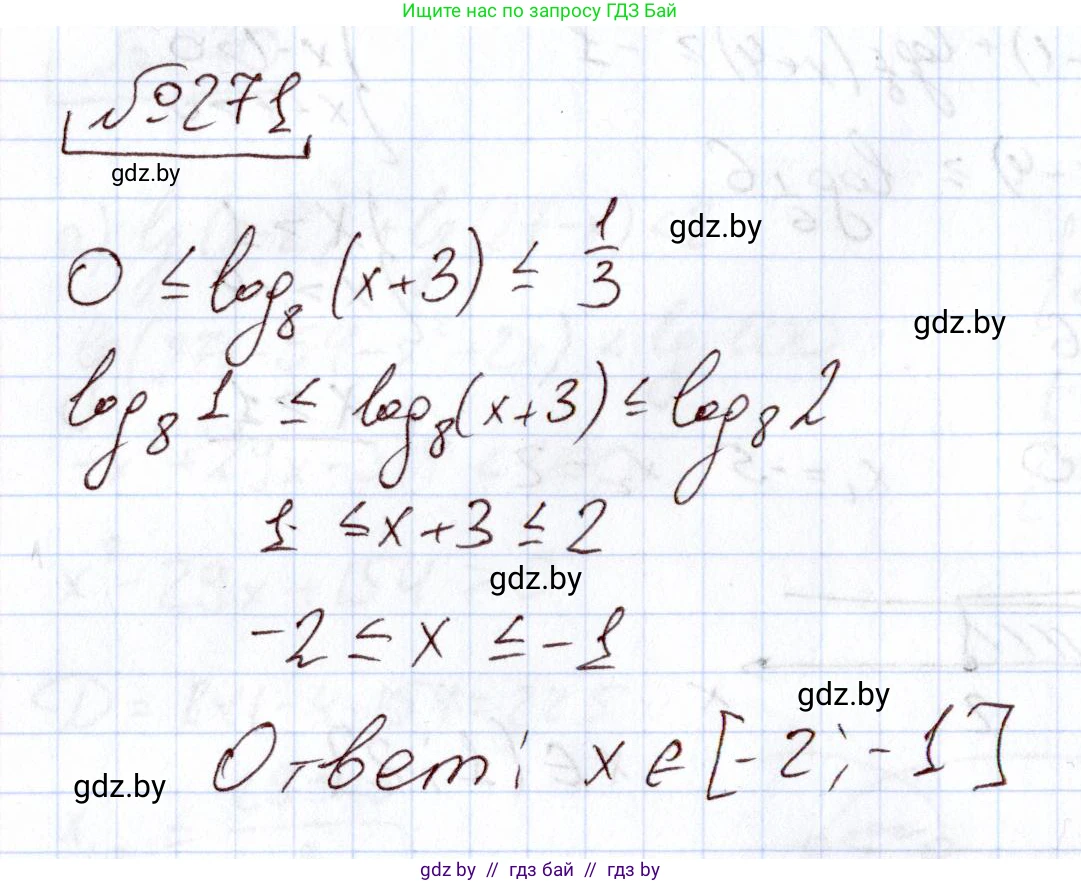 Ищите нас по запросу ГДЗ Бай
№271
gdz.by
0 ≤ log₈(x+3) ≤ 1/3
gdz.by
gdz.by
log₈1 ≤ log₈(x+3) ≤ log₈2
1 ≤ x+3 ≤ 2
gdz.by
-2 ≤ x ≤ -1
gdz.by
Ответ: x ∈ [-2; -1]
gdz.by
gdz by // гдз бай // гдз by